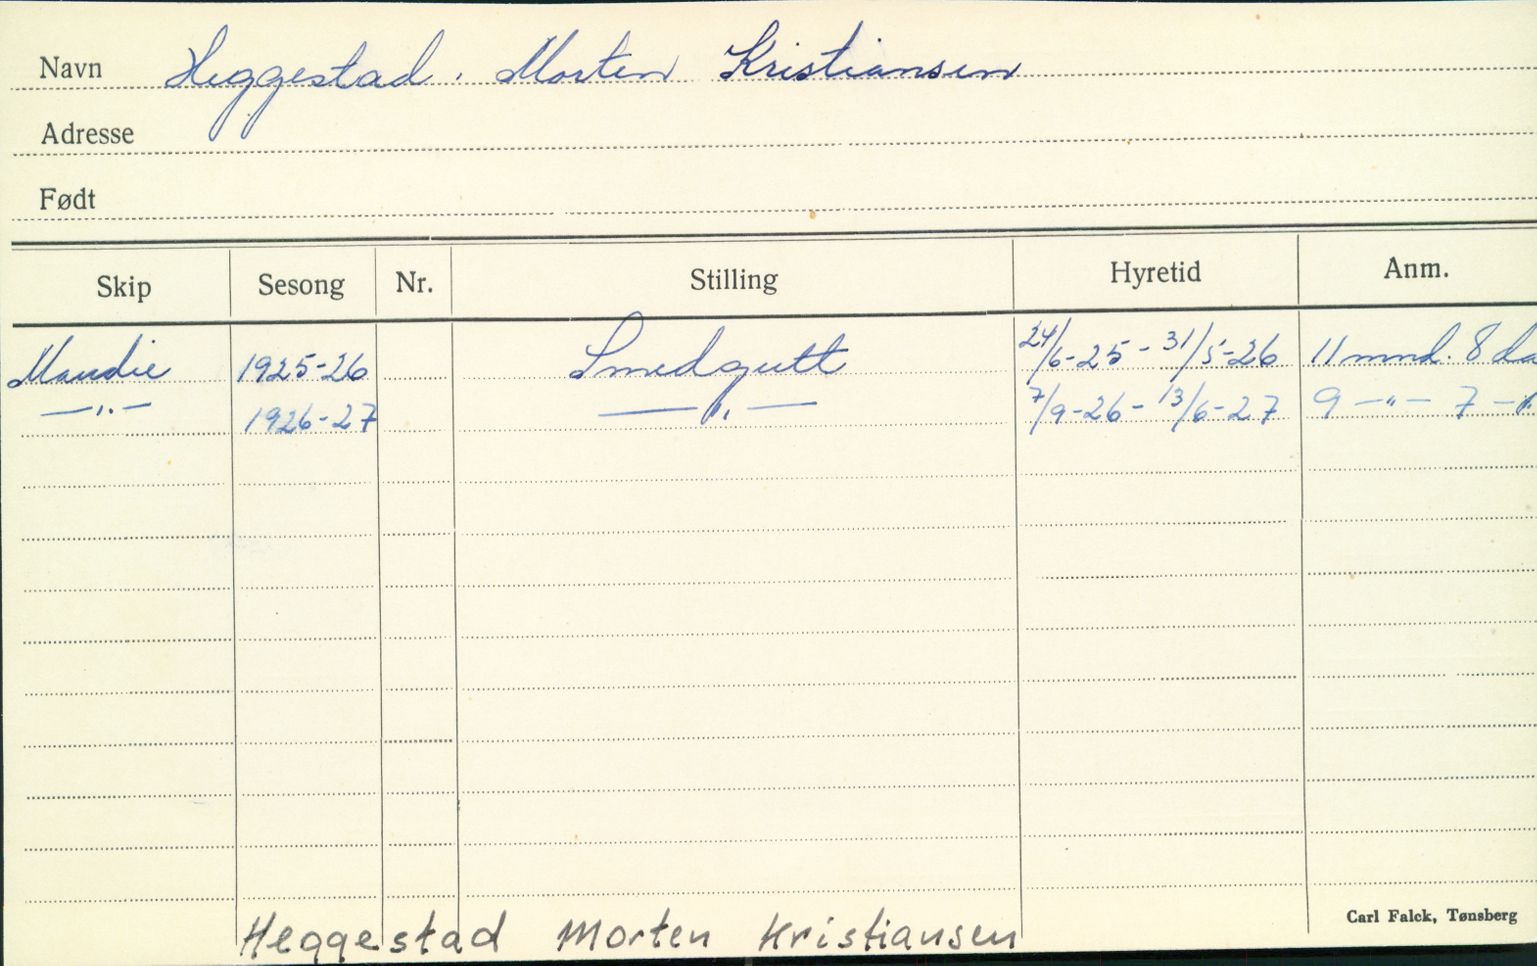 Navn Heggestad, Morten Kristiansen
Adresse
Født
Skip Sesong Nr. Stilling Hyretid Anm.
Maudie 1925-26 Smedgutt 24/6-25 - 31/5-26 11 mnd. 8 da
—"— 1926-27 —"— 7/9-26 - 13/6-27 9 —"— 7 —"
Heggestad Morten Kristiansen
Carl Falck, Tønsberg